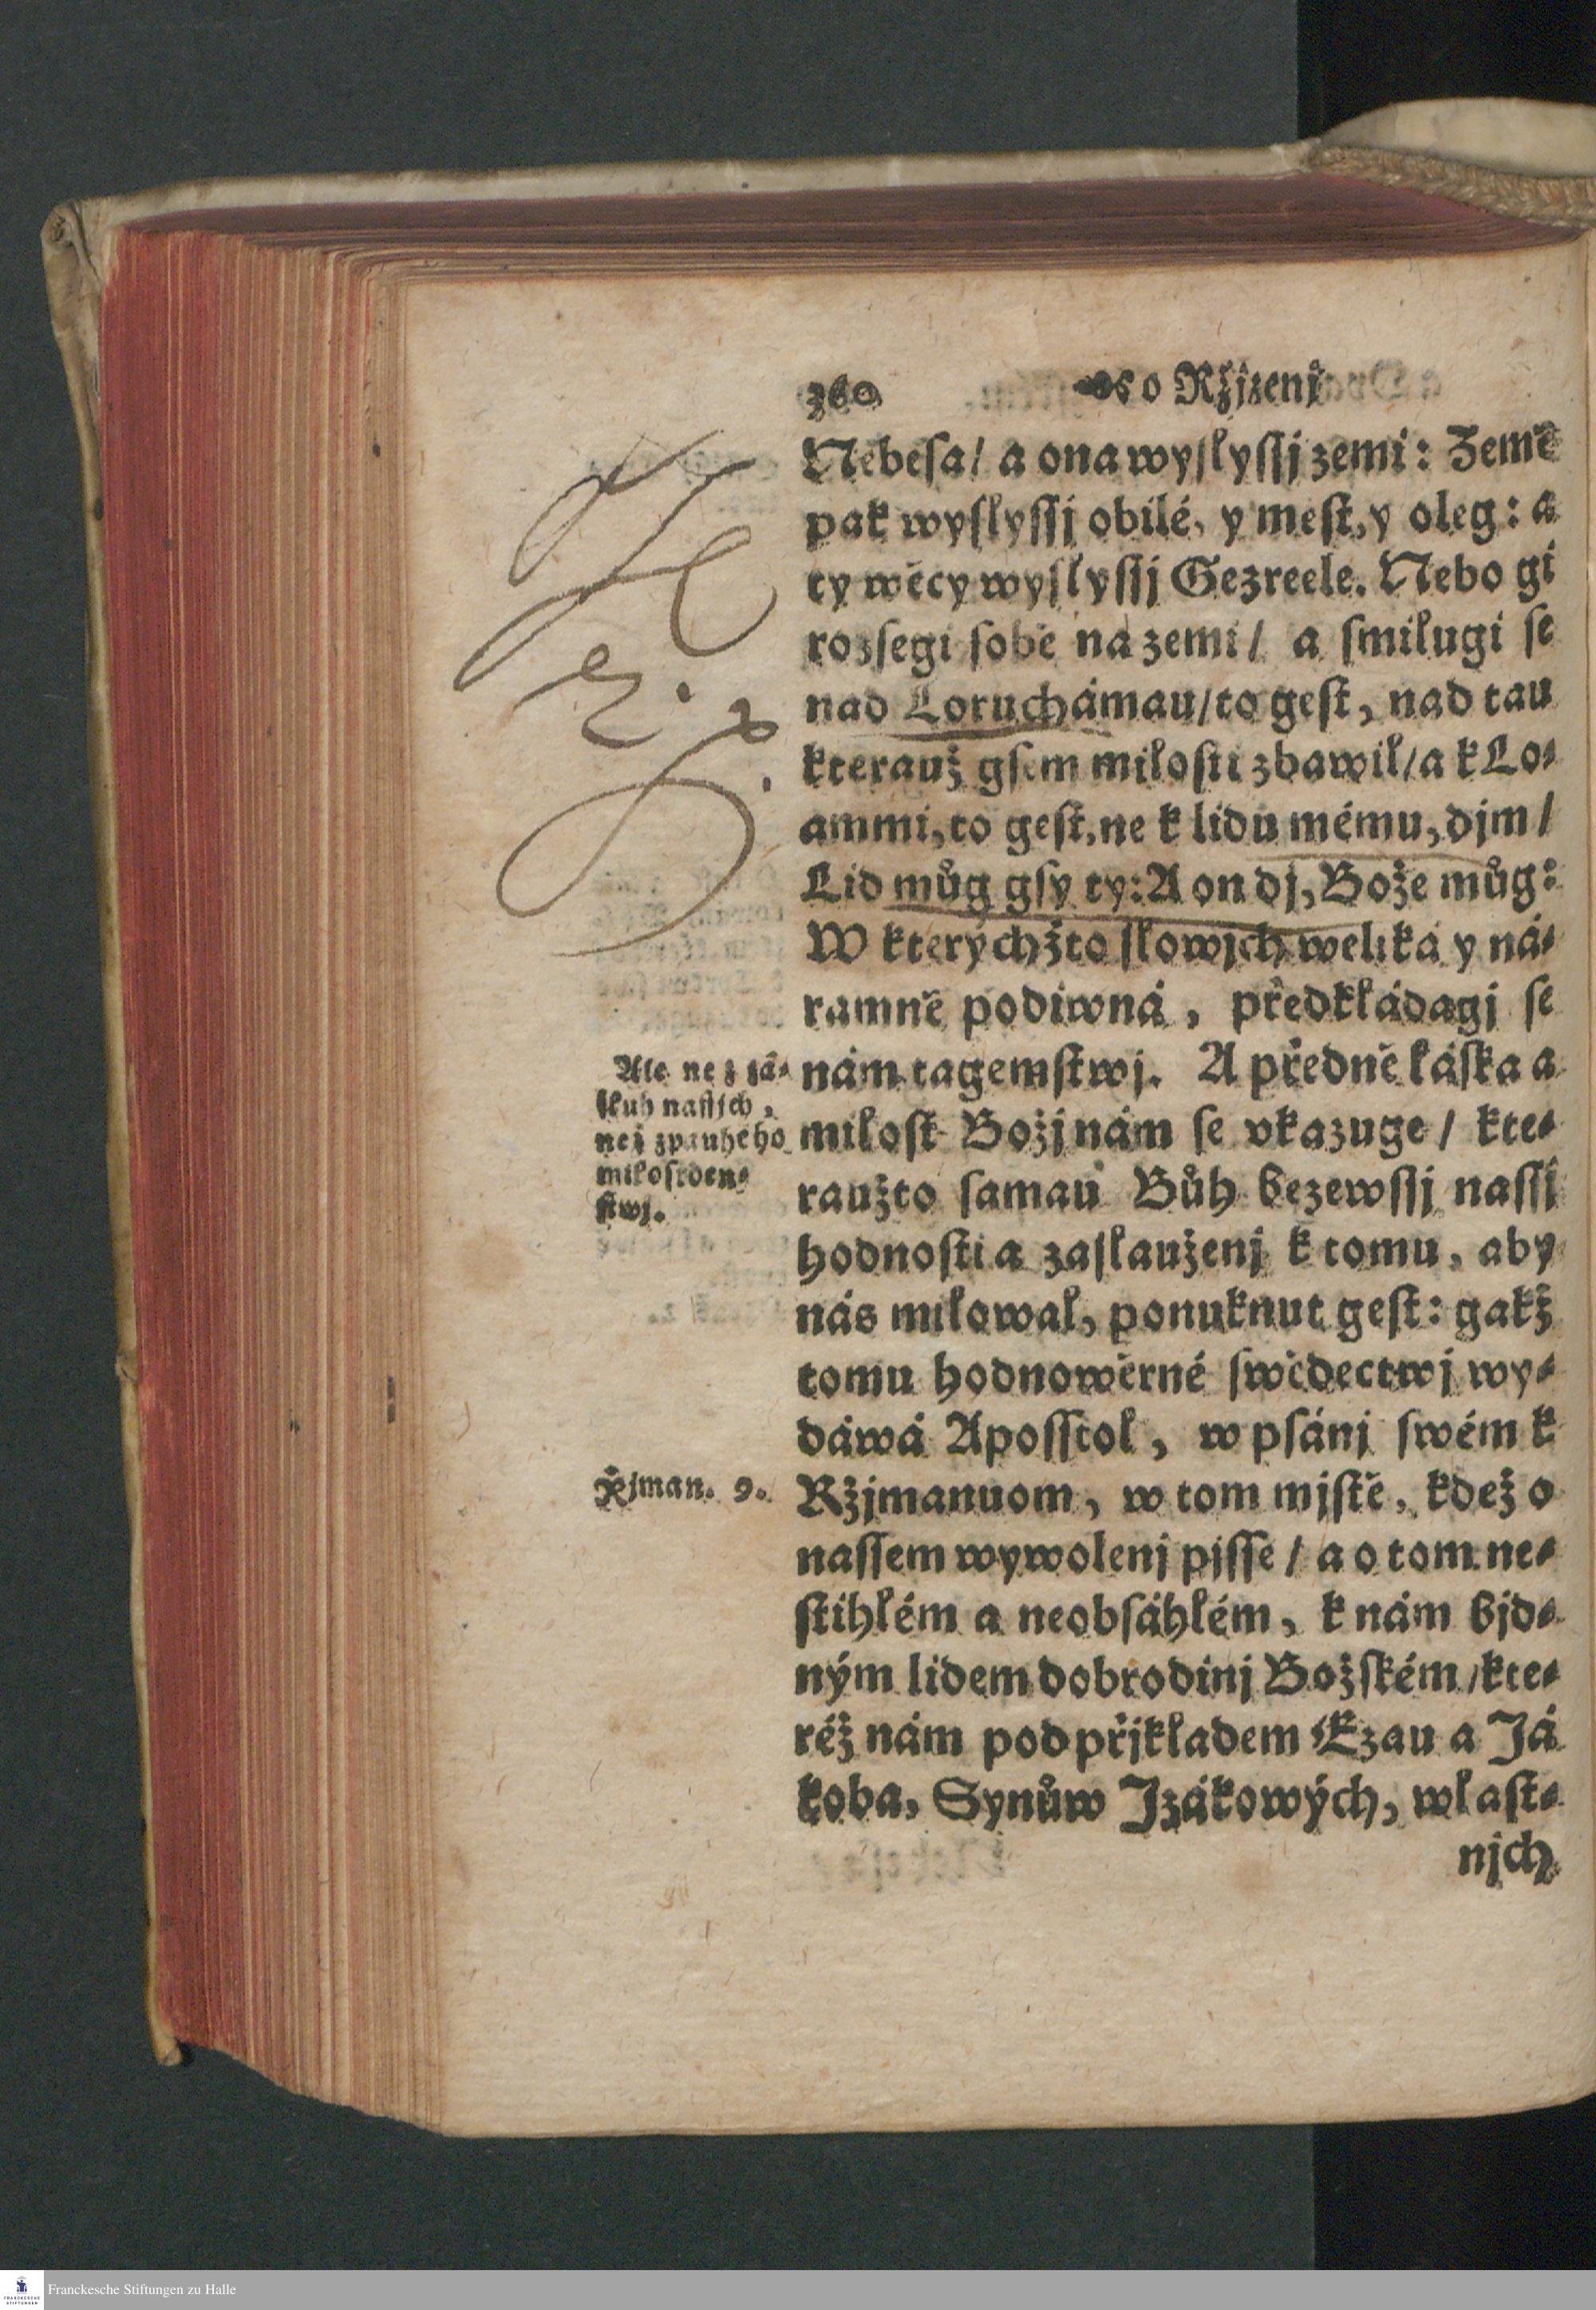 360 o Ržjzenj
Nebesa/ a ona wyslyssj zemi: Země
pak wyslyssj obilé, y mest, y oleg: a
ty wěcy wyslyssj Gezreele. Nebo gi
rozsegi sobě na zemi/ a smilugi se
nad Loruchámau/ to gest, nad tau
kterauž gsem milosti zbawil/ a k Lo-
ammi, to gest, ne k lidu mému, djm/
Lid můg gsy ty: A on dj, Bože můg:
W kterýchžto slowjch weliká y ná-
ramně podiwná, předkládagj se
nám tagemstwj. A předně láska a
milost Božj nám se vkazuge/ kte-
raužto samau Bůh bezewssj nassj
hodnosti a zaslauženj k tomu, aby
nás milowal, ponuknut gest: gakž
tomu hodnowěrné swědectwj wy-
dáwá Apossstol, w psánj swém k
Ržjmanuom, w tom mjstě, kdež o
nassem wywolenj pjsse/ a o tom ne-
stihlém a neobsáhlém, k nám bjd-
ným lidem dobrodinj Božském/ kte-
réž nám pod přjkladem Ezau a Já
koba, Synůw Jzákowých, wlast-
njch
Ale ne z zá-
sluh nassjch,
než z pauhého
milosrden-
stwj.
Řjman. 9.
Franckesche Stiftungen zu Halle
FRANCKESCHE
STIFTUNGEN